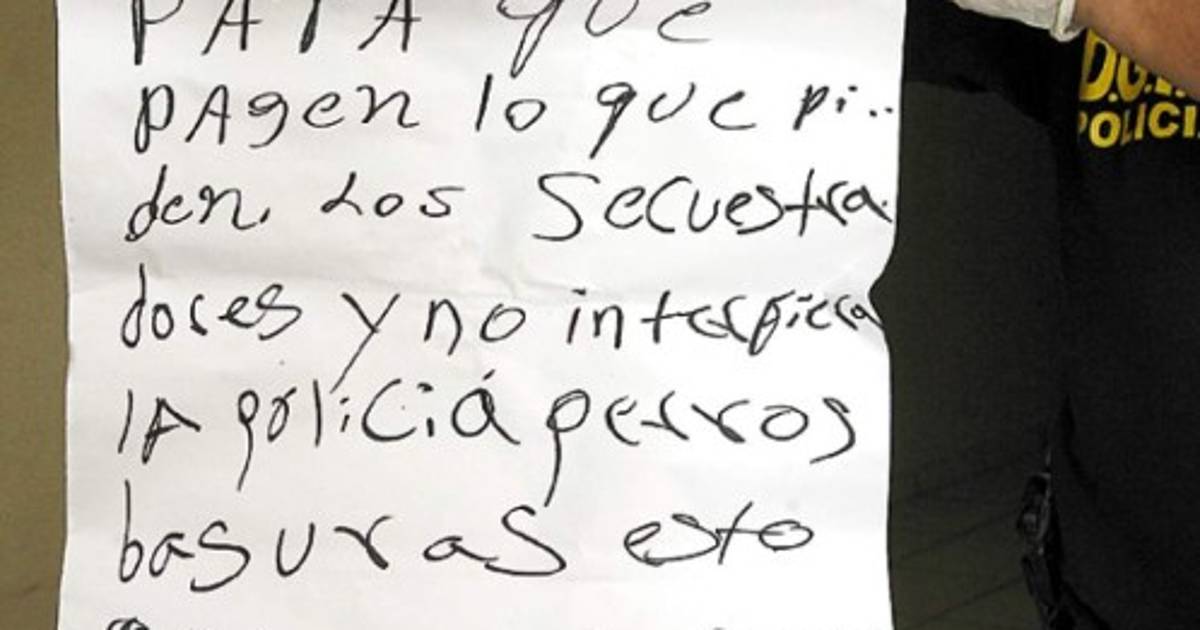 PARA que
PAgen lo que pi..
den. Los Secuestra
dores y no interfiera
lA policiá perros
basuras esto
D.G.I.
POLICI